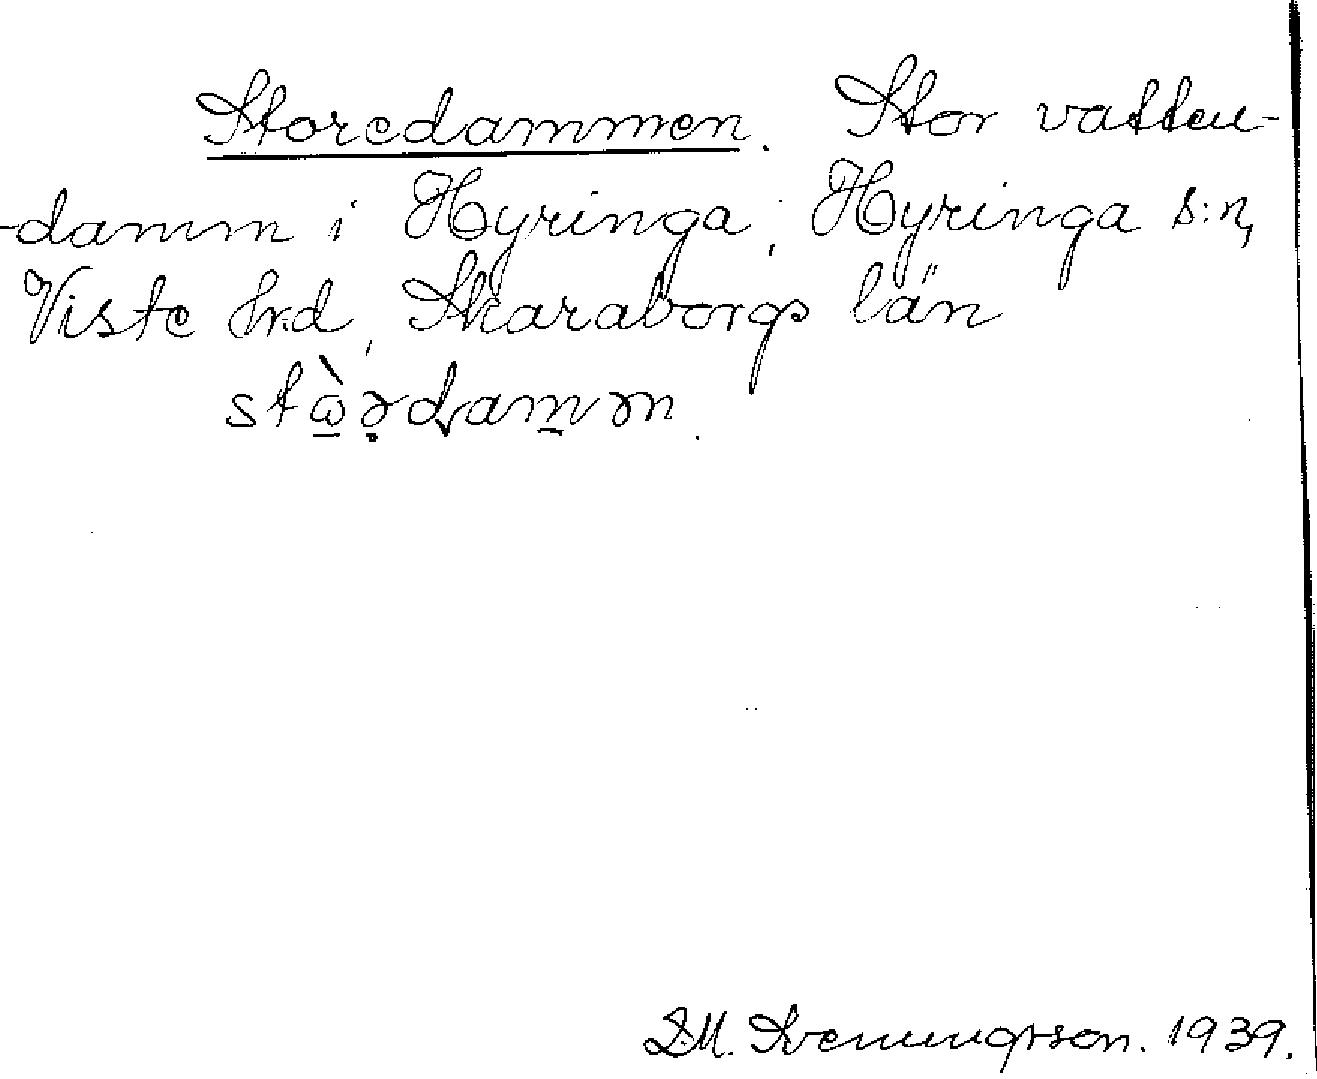 Storedammen. Stor vatten-
-damm i Hyringa, Hyringa s:n,
Viste hrd, Skaraborgs län
D.M. Svenungsson. 1939.